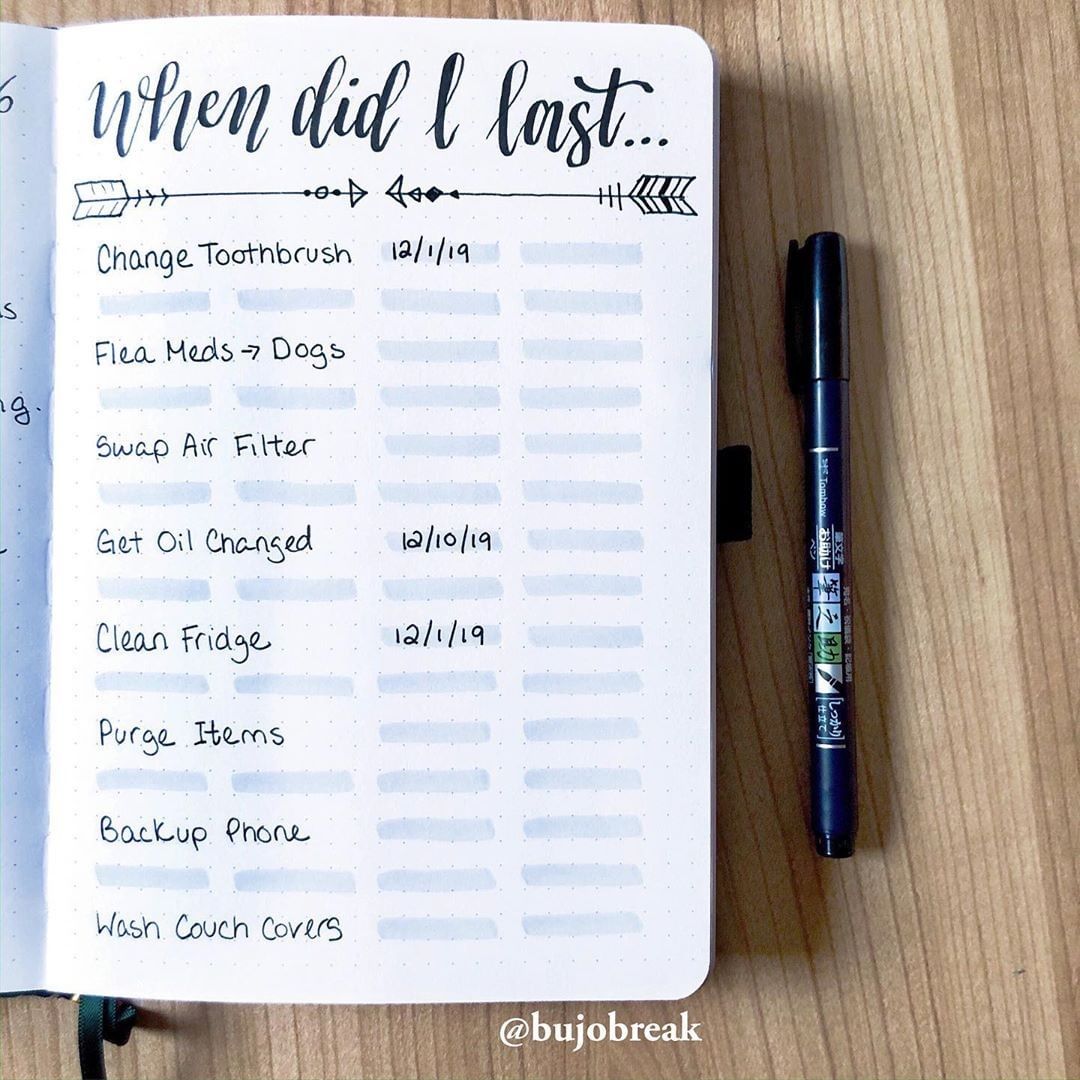 When did I last...
Change Toothbrush 12/1/19
Flea Meds → Dogs
Swap Air Filter
Get Oil Changed 12/10/19
Clean Fridge 12/1/19
Purge Items
Backup Phone
Wash Couch Covers
Tombow
お助け
筆之助
しっかり
仕立て
@bujobreak